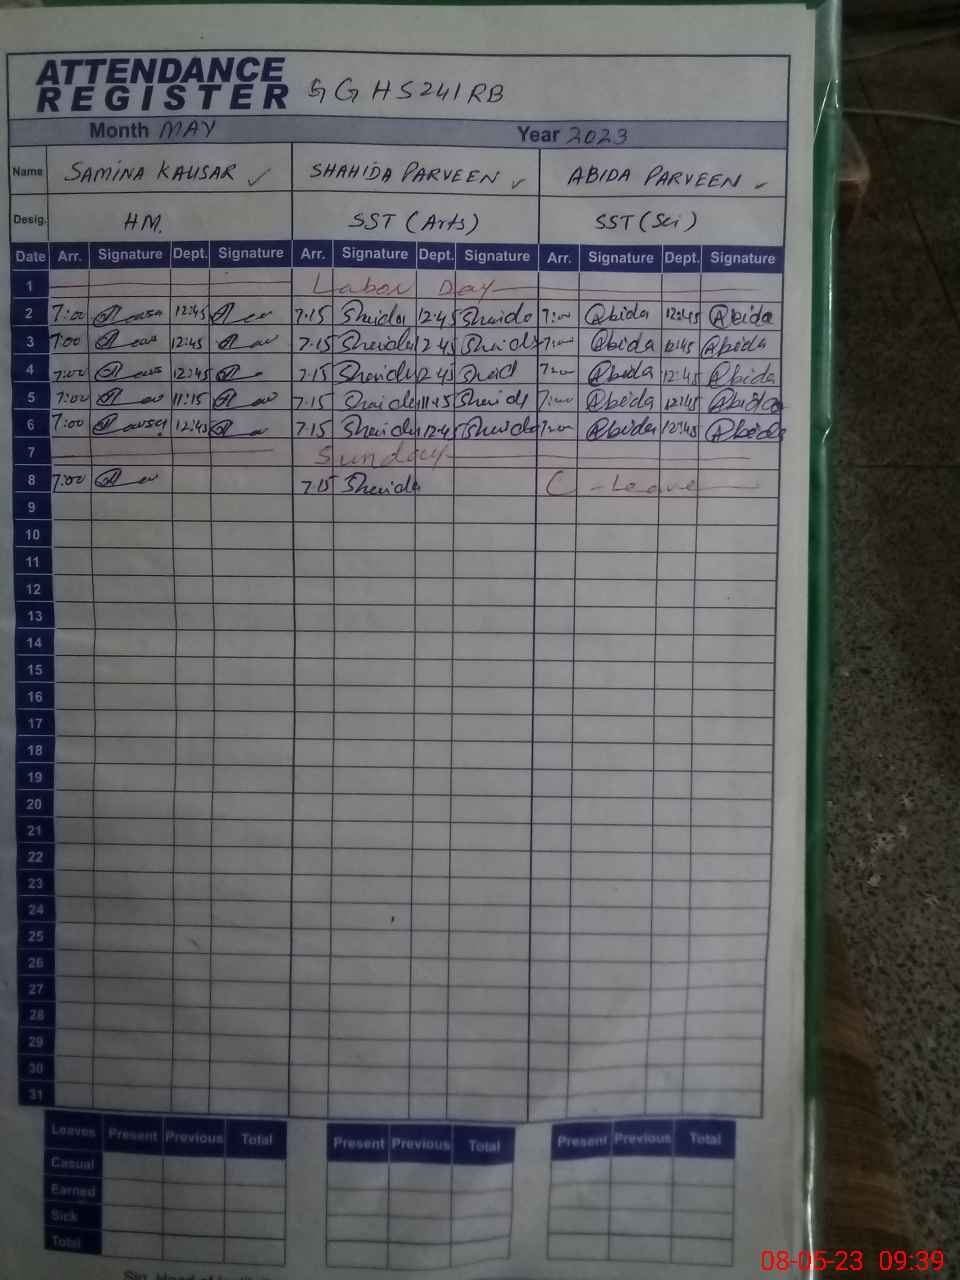 ATTENDANCE
REGISTER GGHS241RB
Month MAY Year 2023
Name SAMINA KAUSAR ✓ SHAHIDA PARVEEN ✓ ABIDA PARVEEN ✓
Desig. HM. SST (Arts) SST (Sci)
Date Arr. Signature Dept. Signature Arr. Signature Dept. Signature Arr. Signature Dept. Signature
1 Labor Day
2 7:00 12:45 7.15 Sheida 12:45 Sheida 7:00 Abida 12:45 Abida
3 7:00 12:45 7.15 Sheida 12:45 Sheida 7:00 Abida 12:45 Abida
4 7:00 12:45 7.15 Sheida 12:45 7:00 Abida 12:45 Abida
5 7:00 11:15 7.15 Sheida Sheida 7:00 Abida Abida
6 7:00 12:45 7.15 Sheida 12:45 Sheida 7:00 Abida 12:45 Abida
7 Sunday
8 7:00 7.15 Sheida C-Leave
9
10
11
12
13
14
15
16
17
18
19
20
21
22
23
24
25
26
27
28
29
30
31
Leaves Present Previous Total Present Previous Total Present Previous Total
Casual
Earned
Sick
Total
08-05-23 09:39